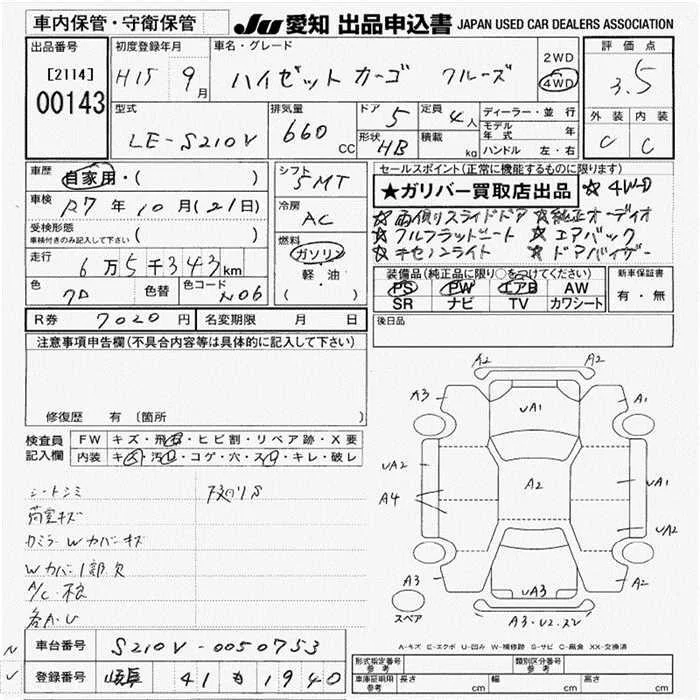 車内保管・守衛保管
JU 愛知 出品申込書 JAPAN USED CAR DEALERS ASSOCIATION
出品番号
[2114]
00143
初度登録年月
H15 9月
車名・グレード
ハイゼットカーゴ クルーズ
2WD
4WD
評価点
3.5
外装 内装
C C
型式
LE-S210V
排気量
660 CC
ドア 5
形状 HB
定員 4人
積載 kg
ディーラー・並行
モデル年式 年
ハンドル 左・右
車歴 自家用・( )
車検 R7年10月(21日)
受検形態
車検付きのみ記入して下さい ( )
走行 6万5千343km
色
色替
色コード N06
シフト 5MT
冷房 AC
燃料 ガソリン
軽・油
( )
セールスポイント(正常に機能するものに限ります)
★ガリバー買取店出品 ☆4WD
☆両側スライドドア ☆純正オーディオ
☆フルフラットシート ☆エアバック
☆キセノンライト ☆ドアバイザー
装備品(純正品に限り○をつけてください)
PS PW エアB AW
SR ナビ TV カワシート
新車保証書
有・無
R券 7020円 名変期限 月 日
後日品
注意事項申告欄(不具合内容等は具体的に記入して下さい)
修復歴 有〔箇所 〕
検査員記入欄
FW キズ・飛石・ヒビ割・リペア跡・X要
内装 キズ・汚れ・コゲ・穴・スレ・キレ・破レ
シートシミ
荷室キズ
カミラーWカバーキズ
Wカバー1部欠
A/C不良
各A.U
A2 A2
A3 A1
UA1
UA2 UA1
A2
A4
UA2
A3 A2
UA3
スペア
A3・U2.
A-キズ E-エクボ U-凹み W-補修跡 S-サビ C-腐食 XX-交換済
車台番号 S210V-0050753
登録番号 岐阜 41 1940
形式指定番号 参考
類別区分番号 参考
車庫証明用 参考 長さ cm 幅 cm 高さ cm